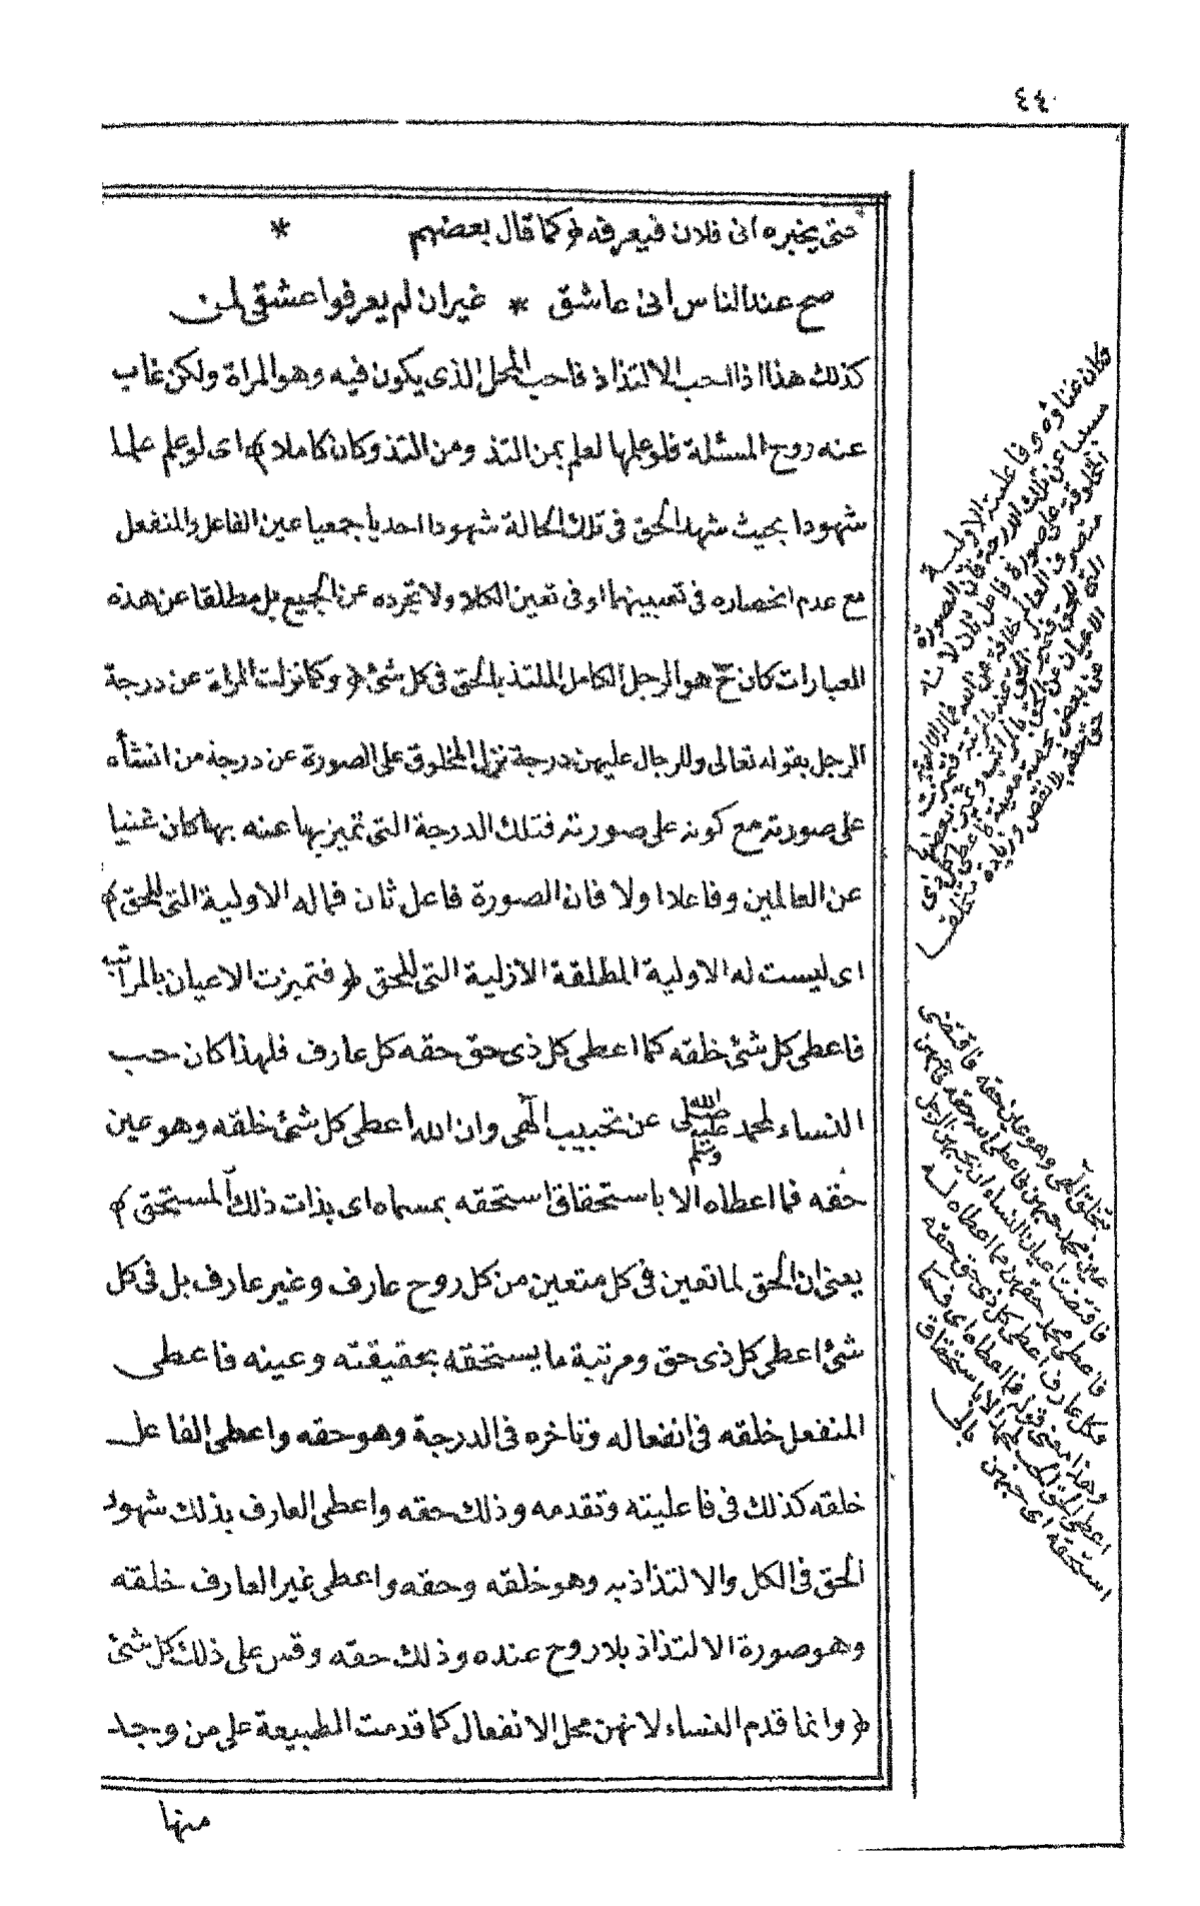 ٤٤٠
حتى يخبره انى فلان فيعرفه ﴿ كما قال بعضهم *
صح عند الناس انى عاشق * غير ان لم يعرفوا عشقى لمن
كذلك هذا اذا احب الالتذاذ فاحب المحل الذى يكون فيه وهو المراة ولكن غاب
عنه روح المسئلة فلو علمها لعلم بمن التذ ومن التذ وكان كاملا ﴾ اى لو علم علما
شهودا بحيث شهد الحق فى تلك الحالة شهودا احديا جمعيا عين الفاعل والمنفعل
مع عدم انحصاره فى تعيينهما او فى تعين الكل ولا تجرده عن الجميع بل مطلقا عن هذه
العبارات كان ح هو الرجل الكامل الملتذ بالحق فى كل شئ ﴿ وكما نزلت المراة عن درجة
الرجل بقوله تعالى وللرجال عليهن درجة نزل المخلوق على الصورة عن درجة من انشأه
على صورته مع كونه على صورته فتلك الدرجة التى تميز بها عنه بها كان غنيا
عن العالمين وفاعلا اولا فان الصورة فاعل ثان فماله الاولية التى للحق ﴾
اى ليست له الاولية المطلقة الازلية التى للحق ﴿ فتميزت الاعيان بالمراتب
فاعطى كل شئ خلقه كما اعطى كل ذى حق حقه كل عارف فلهذا كان حب
النساء لمحمد صلى الله عليه وسلم عن تحبيب آلهى وان الله اعطى كل شئ خلقه وهو عين
حقه فما اعطاه الا باستحقاق استحقه بمسماه اى بذات ذلك المستحق ﴾
يعنى ان الحق لما تعين فى كل متعين من كل روح عارف وغير عارف بل فى كل
شئ اعطى كل ذى حق ومرتبة ما يستحقه بحقيقته وعينه فاعطى
المنفعل خلقه فى انفعاله وتاخره فى الدرجة وهو حقه واعطى الفاعل
خلقه كذلك فى فاعليته وتقدمه وذلك حقه واعطى العارف بذلك شهود
الحق فى الكل والالتذاذ به وهو خلقه وحقه واعطى غير العارف خلقته
وهو صورة الالتذاذ بلا روح عنده وذلك حقه وقس على ذلك كل شئ
﴿ وانما قدم النساء لانهن محل الانفعال كما قدمت الطبيعة على من وجد
منها
فاقتضى
بتخلق آلهى وهو عين حقه
فاقتضت اعيان النساء ان يحبهن الرجل
فكل عارف اعطى كل ذى حق حقه
وهذا معنى قوله فما اعطاه اى فما
اعطى الحق الحب لمحمد الا باستحقاق
استحقه اى حبهن بالى